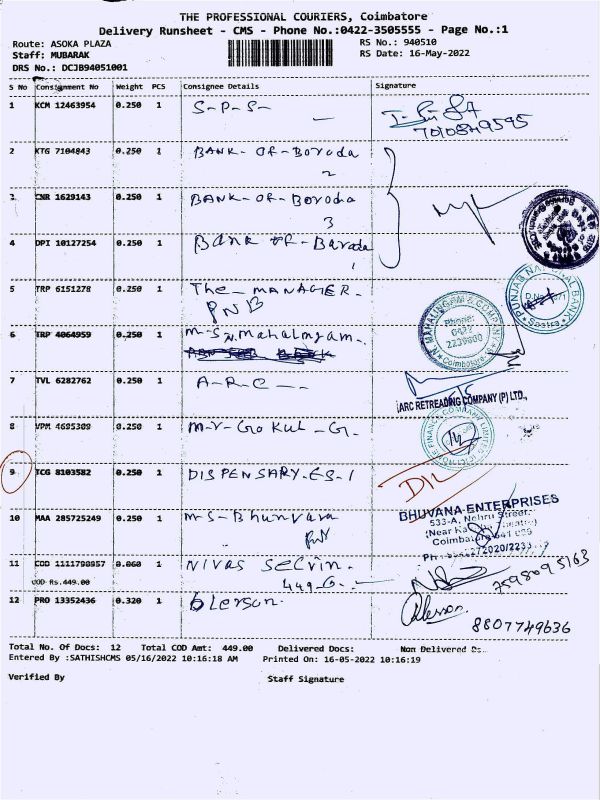 THE PROFESSIONAL COURIERS, Coimbatore
Delivery Runsheet - CMS - Phone No.:0422-3505555 - Page No.:1
Route: ASOKA PLAZA
Staff: MUBARAK
DRS No.: DCJB94051001
RS No.: 940510
RS Date: 16-May-2022
S No Consignment No Weight PCS Consignee Details Signature
1 KCM 12463954 0.250 1 S-P-S-
7010849595
2 KTG 7104843 0.250 1 BANK-OF-Boroda
2
3 CNR 1629143 0.250 1 BANK-OF-Boroda
3
4 DPI 10127254 0.250 1 Bank of-Baroda
1
5 TRP 6151278 0.250 1 The-MANAGER.
PNB
PUNJAB NATIONAL BANK
6 TRP 4064959 0.250 1 M-S N.Mahalingam.
N. MAHALINGAM & COMPANY
Phone:
0422
2239600
Coimbatore
7 TVL 6282762 0.250 1 A-R-C--.
ARC RETREADING COMPANY (P) LTD.,
8 VPM 4695309 0.250 1 M-r-Gokul-G-
FINANCE COMPANY LIMITED
9 TCG 8103582 0.250 1 DISPENSARY-ES-1
D/L
10 MAA 285725249 0.250 1 M-S-Bhunvara
BHUVANA ENTERPRISES
533-A, Nehru Street,
11 COD 1111798957 0.060 1 NIVAS Selvin.
COD Rs.449.00 449-
7598095163
12 PRO 13352436 0.320 1 blerson.
8807749636
Total No. Of Docs: 12 Total COD Amt: 449.00 Delivered Docs: Non Delivered
Entered By :SATHISHCMS 05/16/2022 10:16:18 AM Printed On: 16-05-2022 10:16:19
Verified By Staff Signature